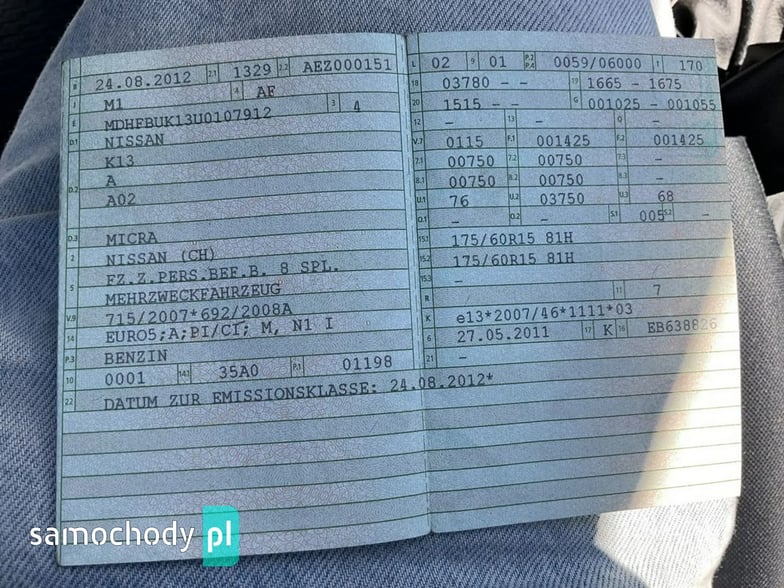 B 24.08.2012 2.1 1329 2.2 AEZ000151
J M1 4 AF
E MDHFBUK13U0107912 3 4
D.1 NISSAN
D.2 K13
A
A02
D.3 MICRA
2 NISSAN (CH)
5 FZ.Z.PERS.BEF.B. 8 SPL.
MEHRZWECKFAHRZEUG
V.9 715/2007*692/2008A
14 EURO5;A;PI/CI; M, N1 I
P.3 BENZIN
10 0001 14.1 35A0 P.1 01198
22 DATUM ZUR EMISSIONSKLASSE: 24.08.2012*
L 02 9 01 P.2 P.4 0059/06000 T 170
18 03780 - - 19 1665 - 1675
20 1515 - - G 001025 - 001055
12 - 13 - Q -
V.7 0115 F.1 001425 F.2 001425
7.1 00750 7.2 00750 7.3 -
8.1 00750 8.2 00750 8.3 -
U.1 76 U.2 03750 U.3 68
O.1 - O.2 - S.1 005 S.2 -
15.1 175/60R15 81H
15.2 175/60R15 81H
15.3 -
R 11 7
K e13*2007/46*1111*03
6 27.05.2011 17 K 16 EB638826
21 -
samochody pl